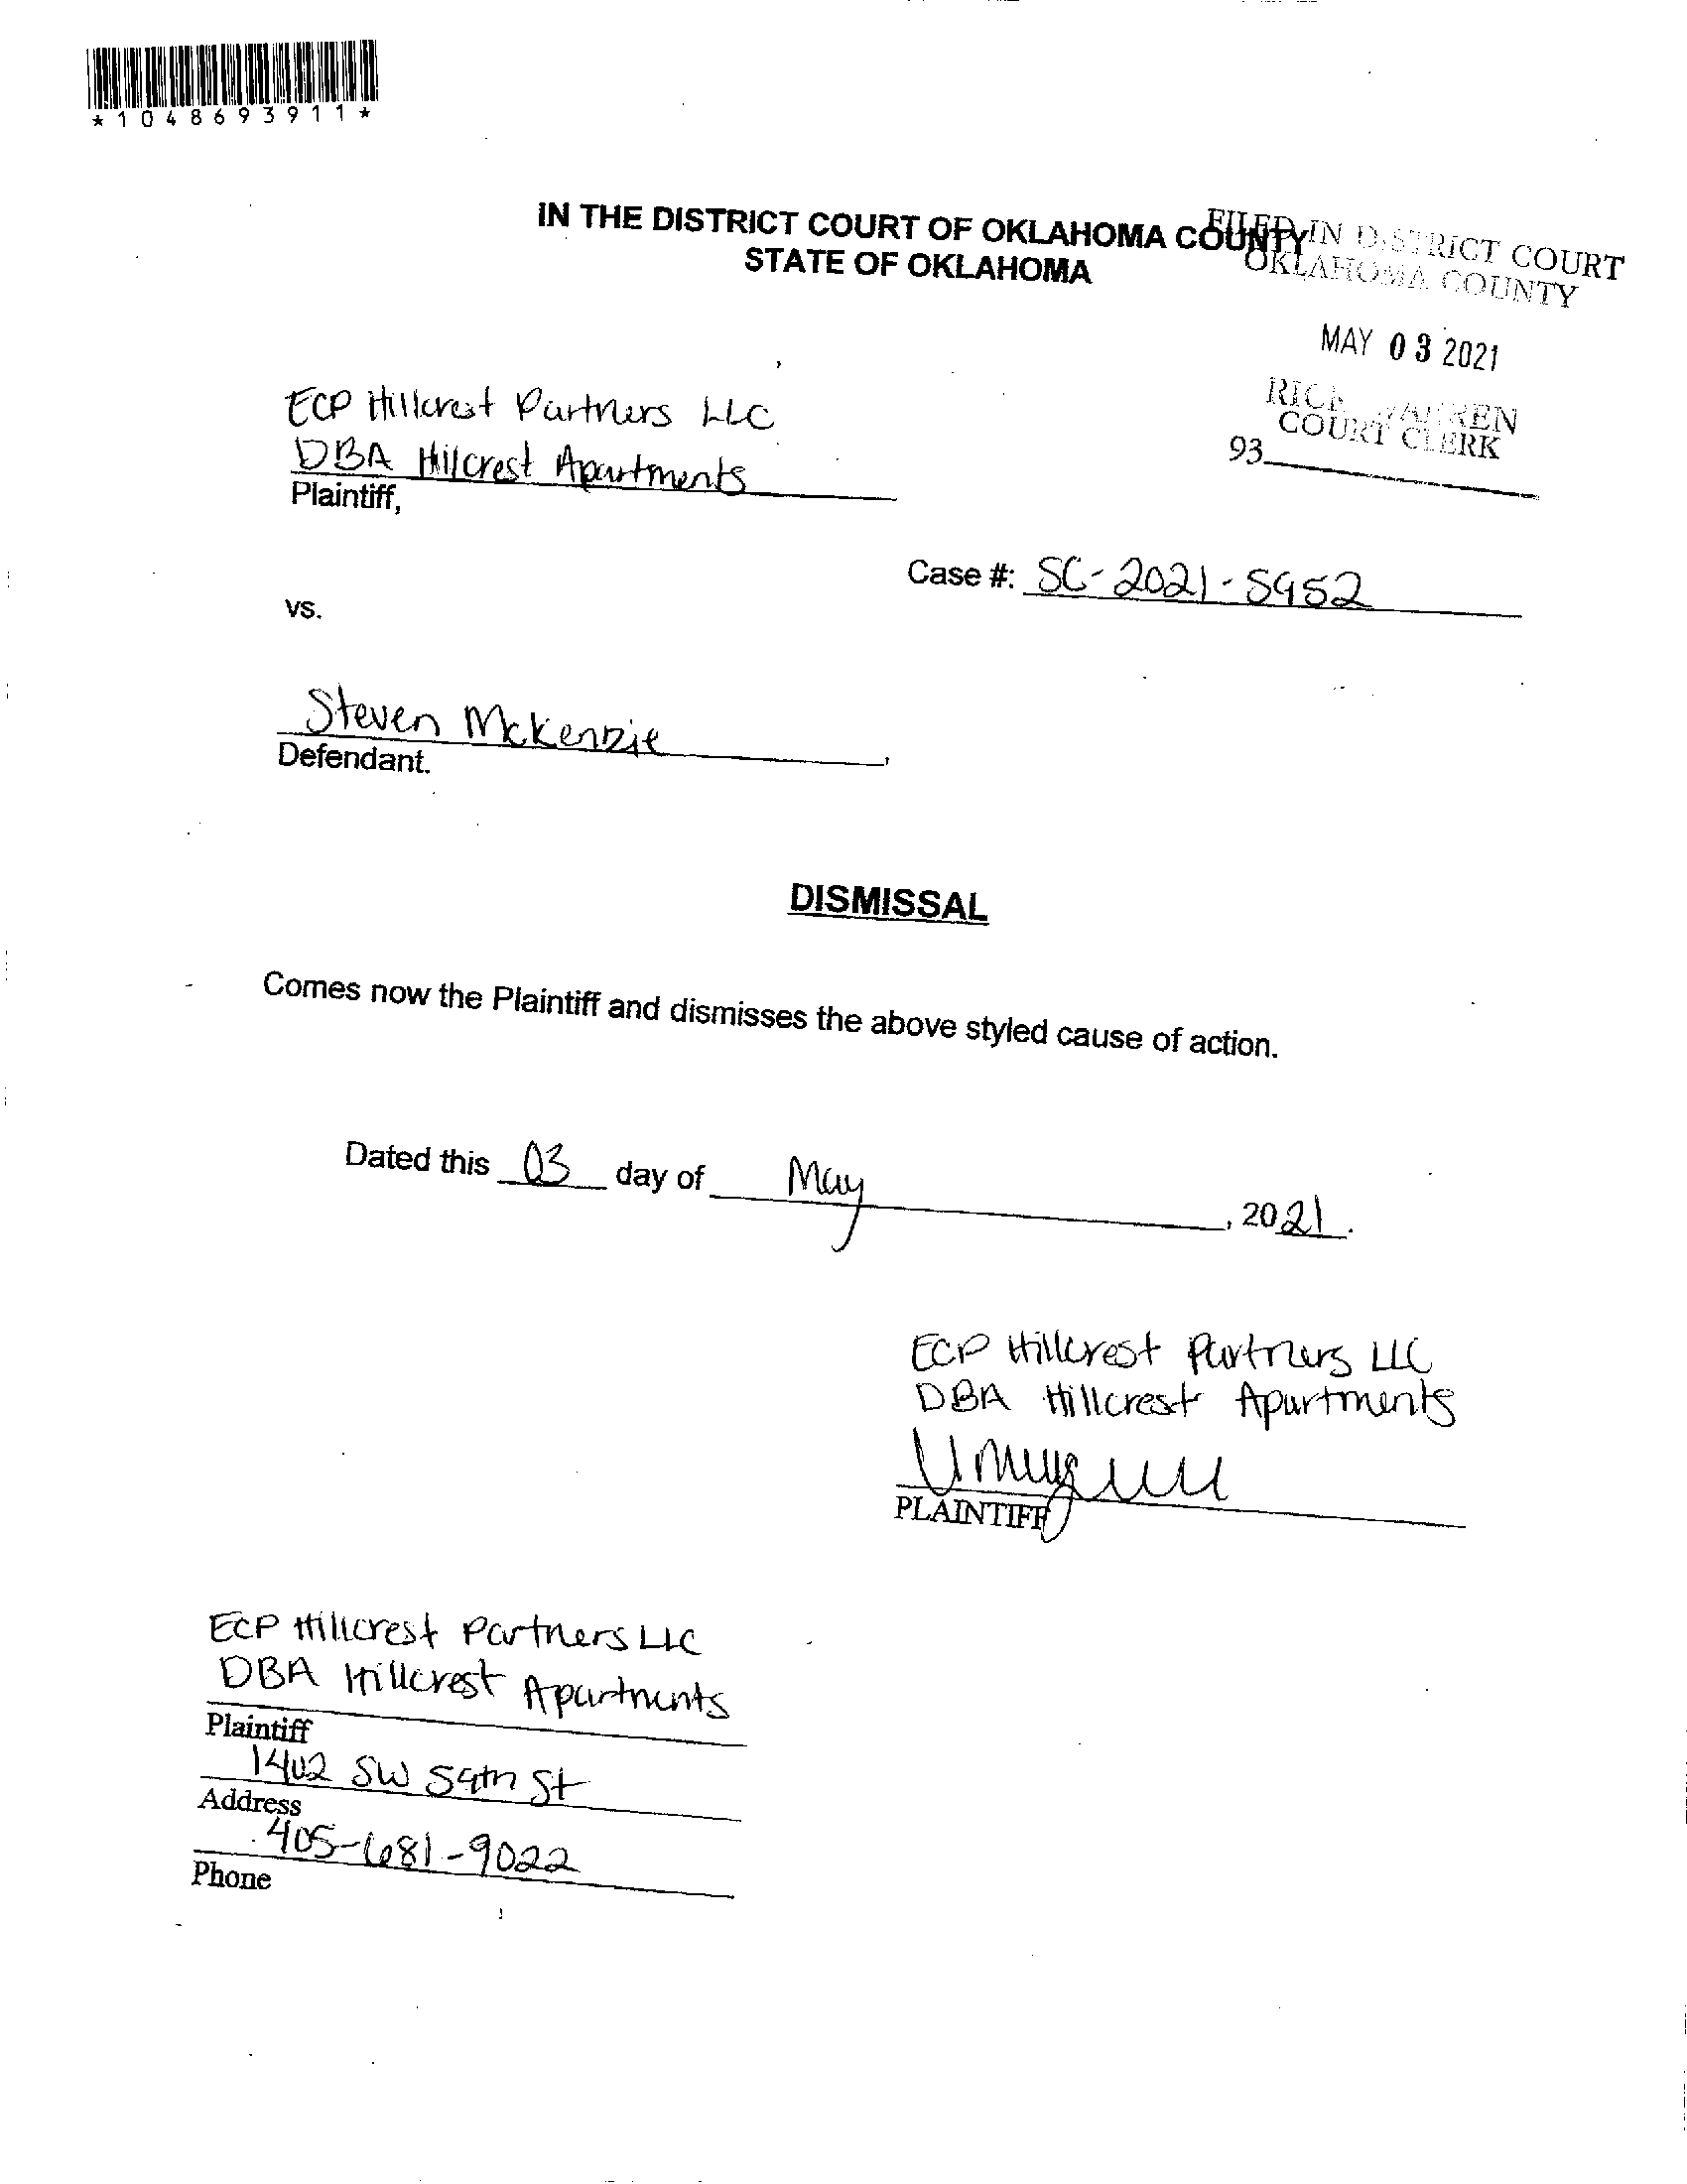 *1048693911*
IN THE DISTRICT COURT OF OKLAHOMA COUNTY
STATE OF OKLAHOMA
FILED IN DISTRICT COURT
OKLAHOMA COUNTY
MAY 03 2021
RICK WARREN
COURT CLERK
93
ECP Hillcrest Partners LLC
DBA Hillcrest Apartments
Plaintiff,
Case #: SC-2021-5952
vs.
Steven McKenzie
Defendant.
DISMISSAL
Comes now the Plaintiff and dismisses the above styled cause of action.
Dated this 03 day of May, 2021.
ECP Hillcrest Partners LLC
DBA Hillcrest Apartments
PLAINTIFF
ECP Hillcrest Partners LLC
DBA Hillcrest Apartments
Plaintiff
1402 SW 59th St
Address
405-681-9022
Phone